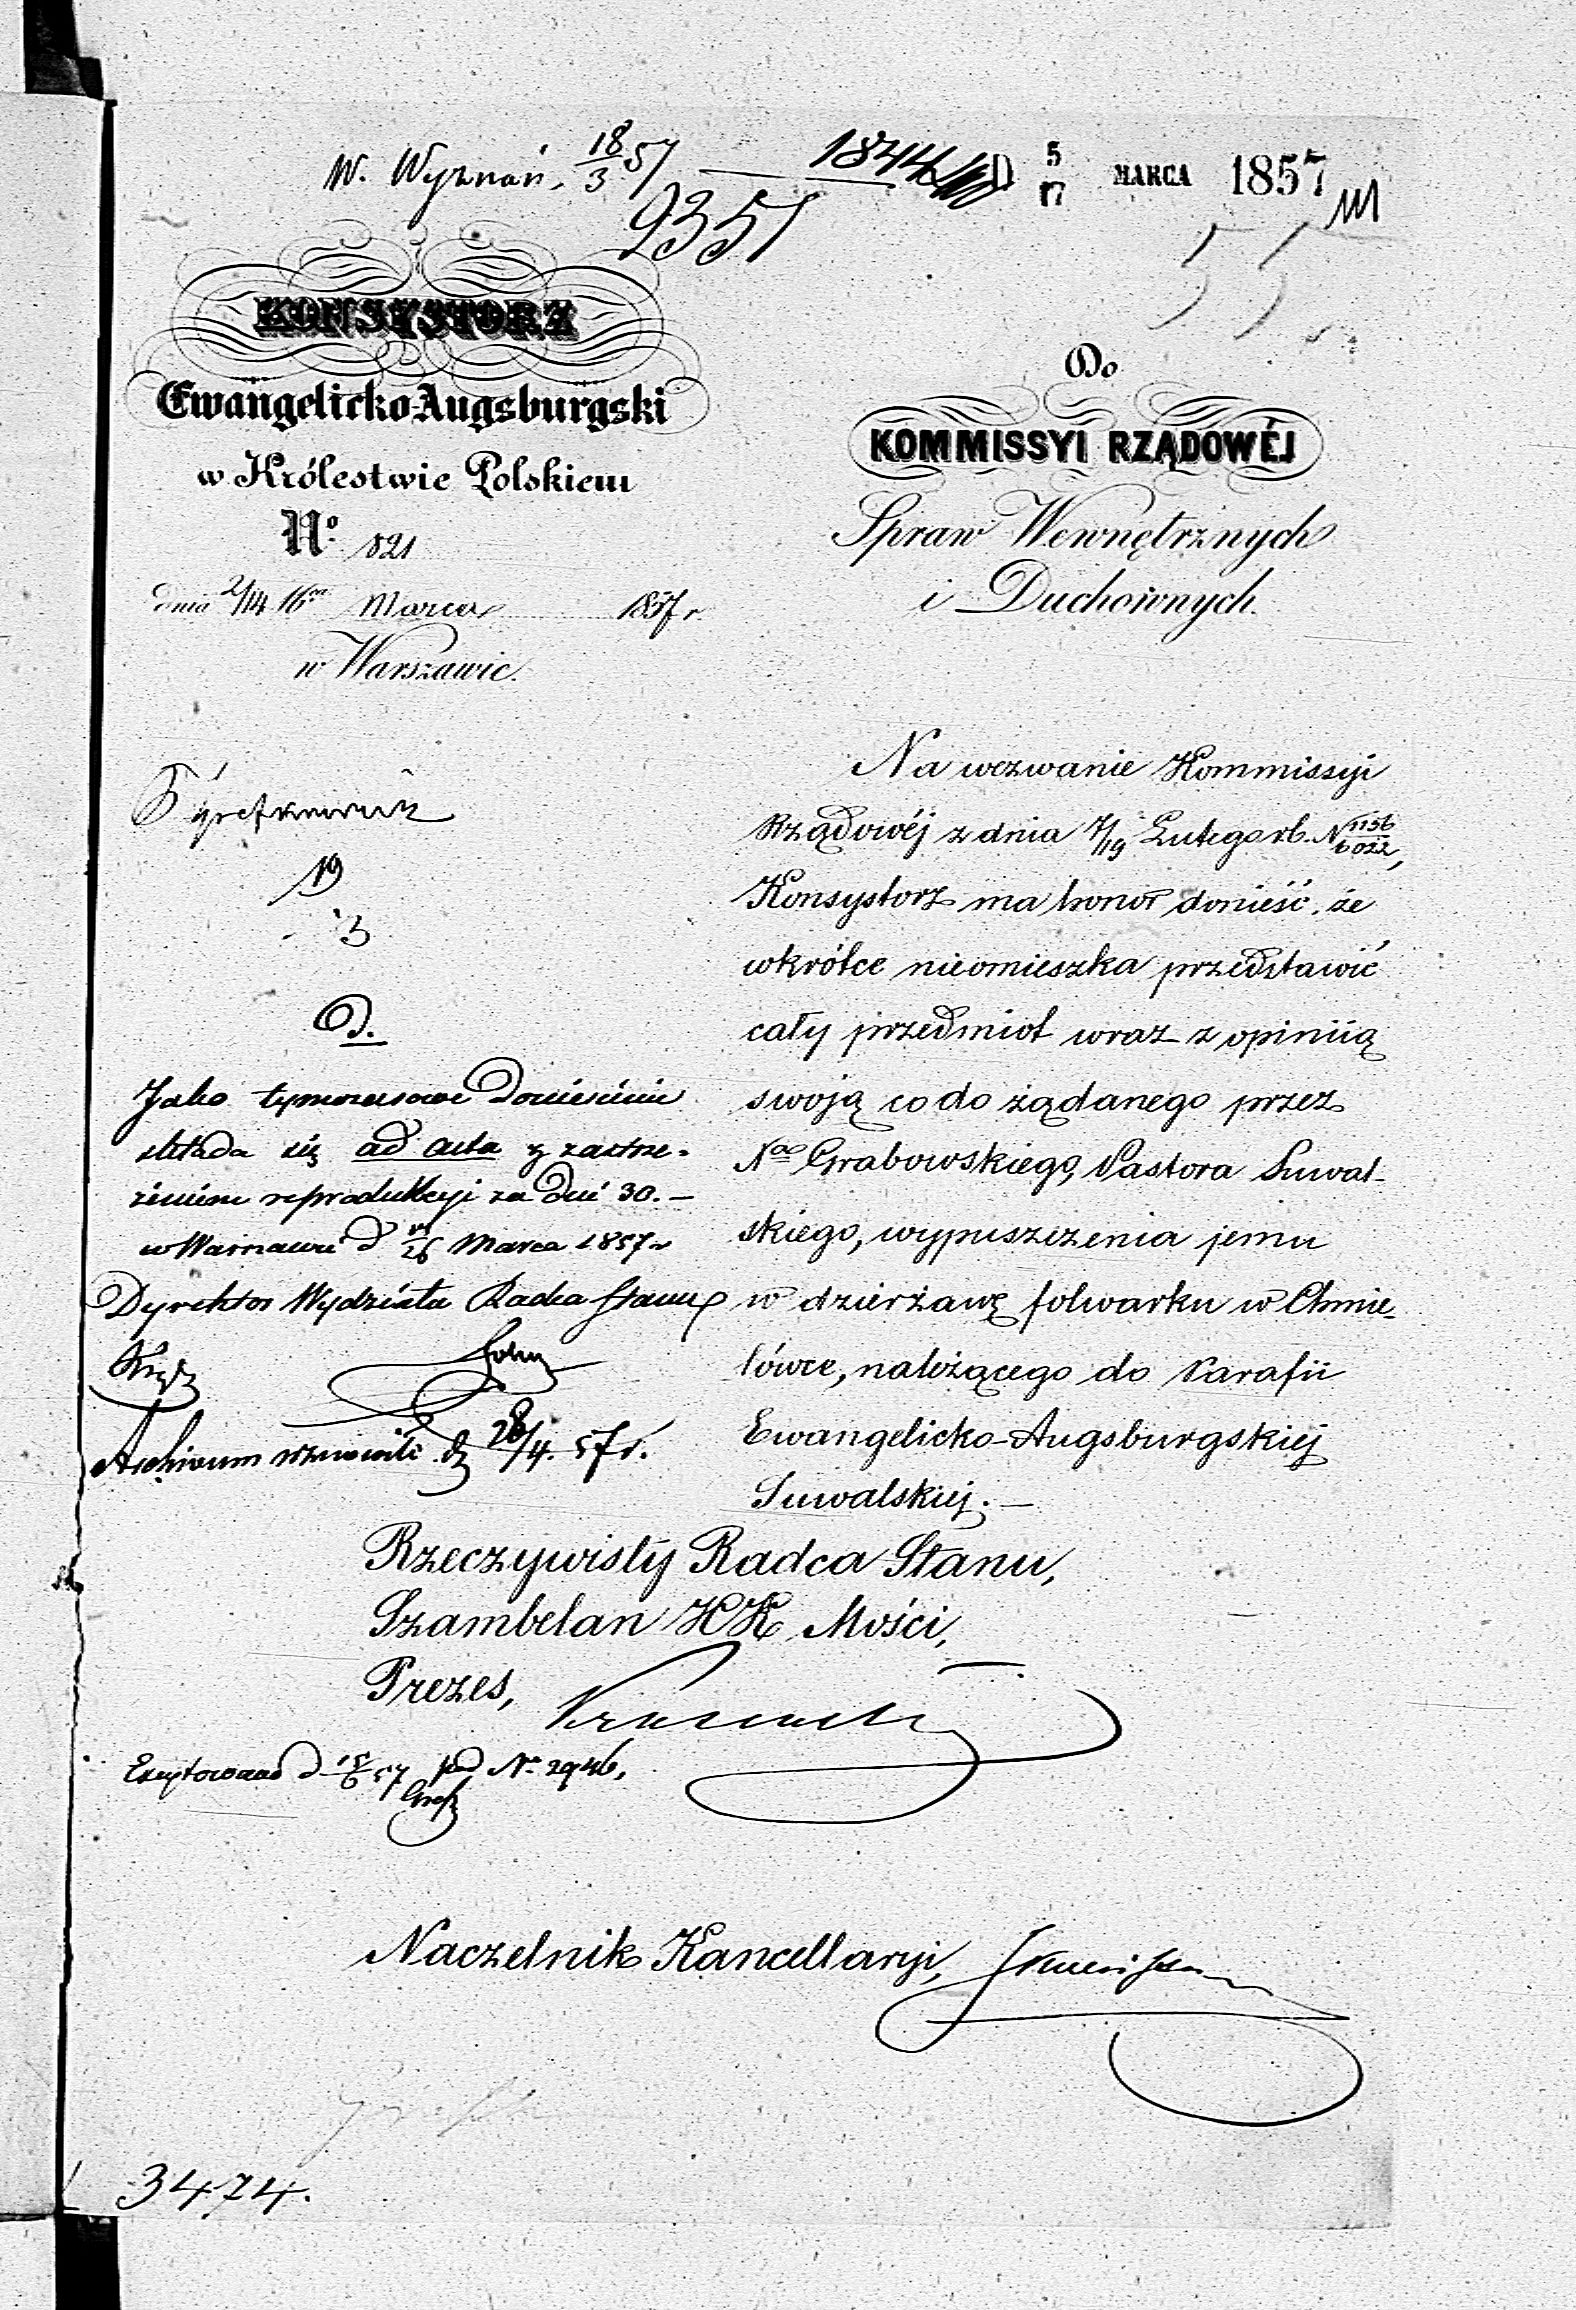 W. Wyznań, 18/3 57 — 1844
D 5/17 MARCA 1857
9357
55
KONSYSTORZ
Ewangelicko-Augsburgski
w Królestwie Polskiem
No. 821
dnia 2/14 16go Marca 1857 r.
w Warszawie.
Do
KOMMISSYI RZĄDOWÉJ
Spraw Wewnętrznych
i Duchownych.
19
3
D.
Jako tymczasowe doniesienie
składa się ad acta z zastrze-
żeniem reprodukcyi za dni 30. —
w Warszawie d /26 Marca 1857 r
Dyrektor Wydziału Radca Stanu
Archiwum wznowiło d 28/4. 57 r.
Na wezwanie Kommissyi
Rządowéj z dnia 7/19 Lutego r.b. N 1156/6022,
Konsystorz ma honor donieść, że
wkrótce nieomieszka przedstawić
cały przedmiot wraz z opiniią
swoją co do żądanego przez
Xdza Grabowskiego, Pastora Suwal-
skiego, wypuszczenia jemu
w dzierżawę folwarku w Chmie-
lówce, należącego do Parafii
Ewangelicko-Augsburgskiej
Suwalskiej. —
Rzeczywisty Radca Stanu,
Szambelan JCK Mości,
Prezes,
d 57 pod No 2946,
Naczelnik Kancellaryi,
3474.